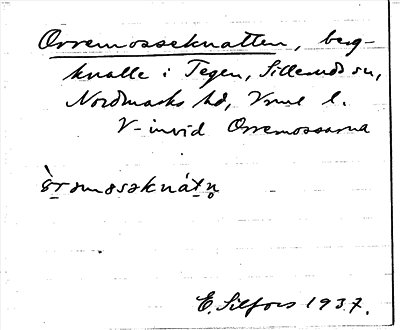 Orremosseknatten, berg-
knalle i Tegen, Sillerud sn,
Nordmarks hd, Vrml l.
V-invid Orremossarna
òrəmosəknátn̥
E. Silfors 1937.